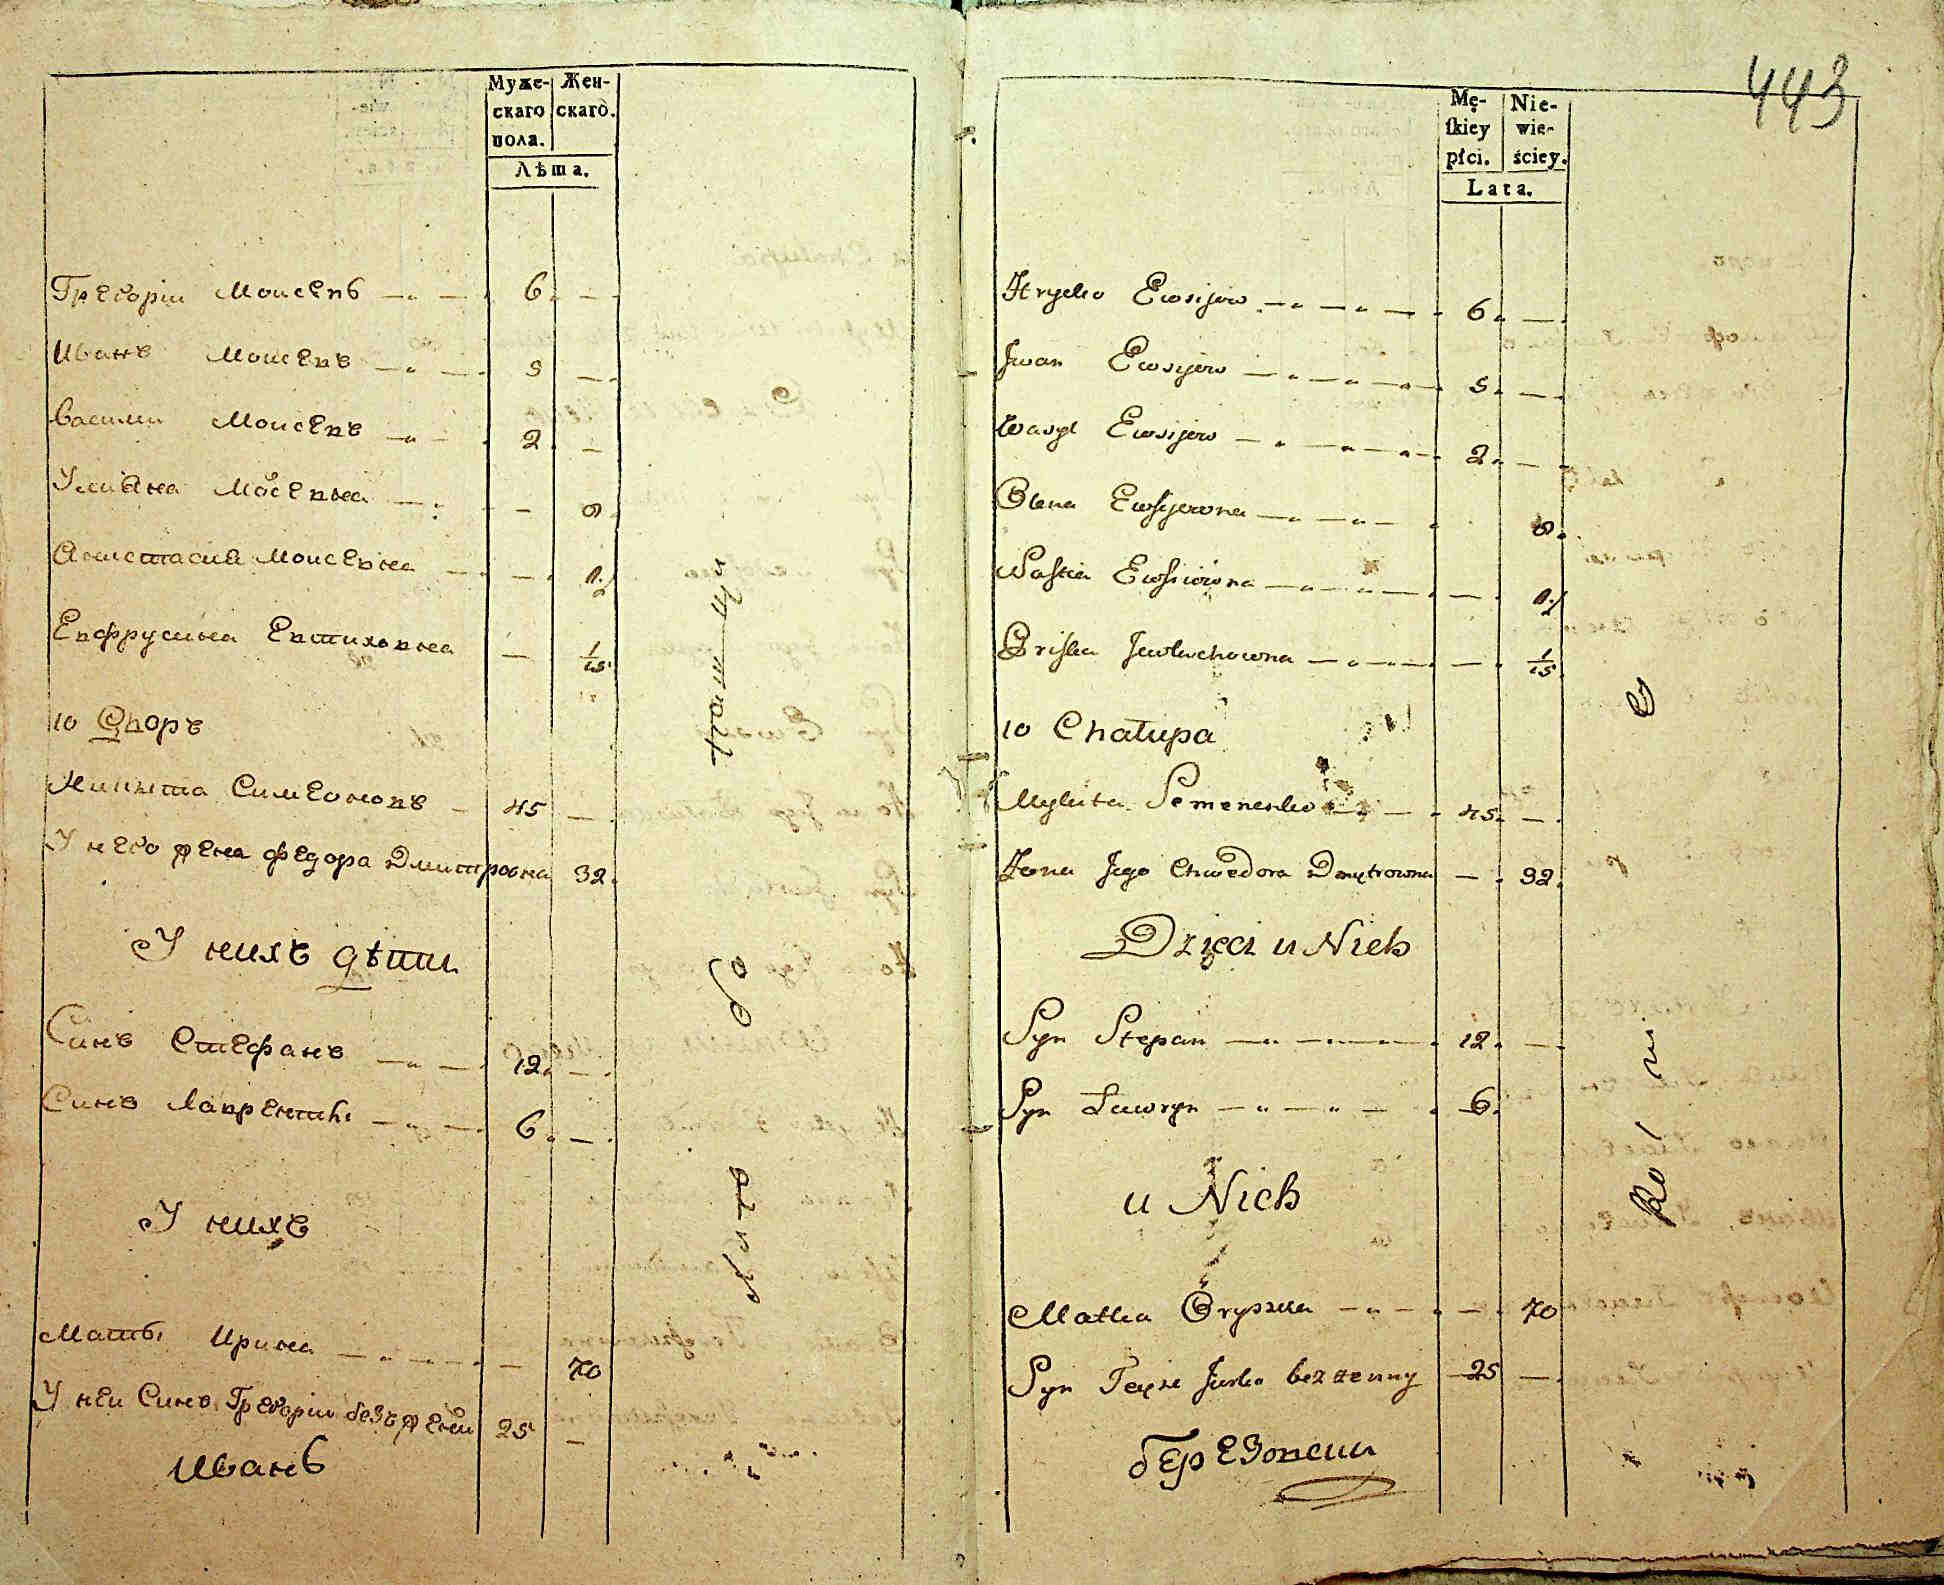 Муже-
скаго
пола.
Жен-
скаго.
Лѣта.
Грегорій Моисеевъ 6
Иванъ Моисеевъ 5
Василий Моисеевъ 2
Улияна Моисеевна 8
Анастасия Моисеевна
Евфрусина Евтиховна 1/15
10 Дворъ
Никита Симеоновъ 45
У него жена Федора Дмитровна 32
У нихъ дѣти
Синъ Стефанъ 12
Синъ Лаврентій 6
У нихъ
Мать Ирина 70
У неи Синъ Грегорій безъженій 25
Иванъ
443
Mę-
skiey
płci.
Nie-
wie-
ściey.
Lata.
Hryćko Ewsijew 6
Jwan Ewsijew 5
Wasyl Ewsijew 2
Olena Ewsijewna 8
Nastia Ewsiiowna
Pryśka Jewtuchowna 1/15
10 Chałupa
Mykita Semenenko 45
Żona Jego Chwedora Dmytrowna 32
Dzieci u Nich
Syn Stepan 12
Syn Ławryn 6
u Nich
Matka Oryszka 70
Syn Teyże Jurko bezżenny 25
Березовски